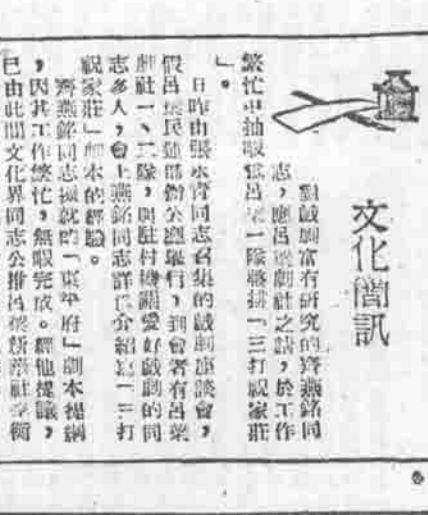 文化簡訊
對戲劇富有研究的齊燕銘同
志,應呂梁劇社之請,於工作
繁忙中抽暇為呂梁一隊導排「三打祝家莊
」。
日昨由張水青同志召集的戲劇座談會,
假呂梁民進部辦公廳舉行,到會者有呂梁
劇社一、二隊,與駐村機關愛好戲劇的同
志多人,會上燕銘同志詳仔介紹寫「三打
祝家莊」劇本的經驗。
齊燕銘同志擬就的「東平府」劇本提綱
,因其工作繁忙,無暇完成。經他提議,
已由此間文化界同志公推呂梁